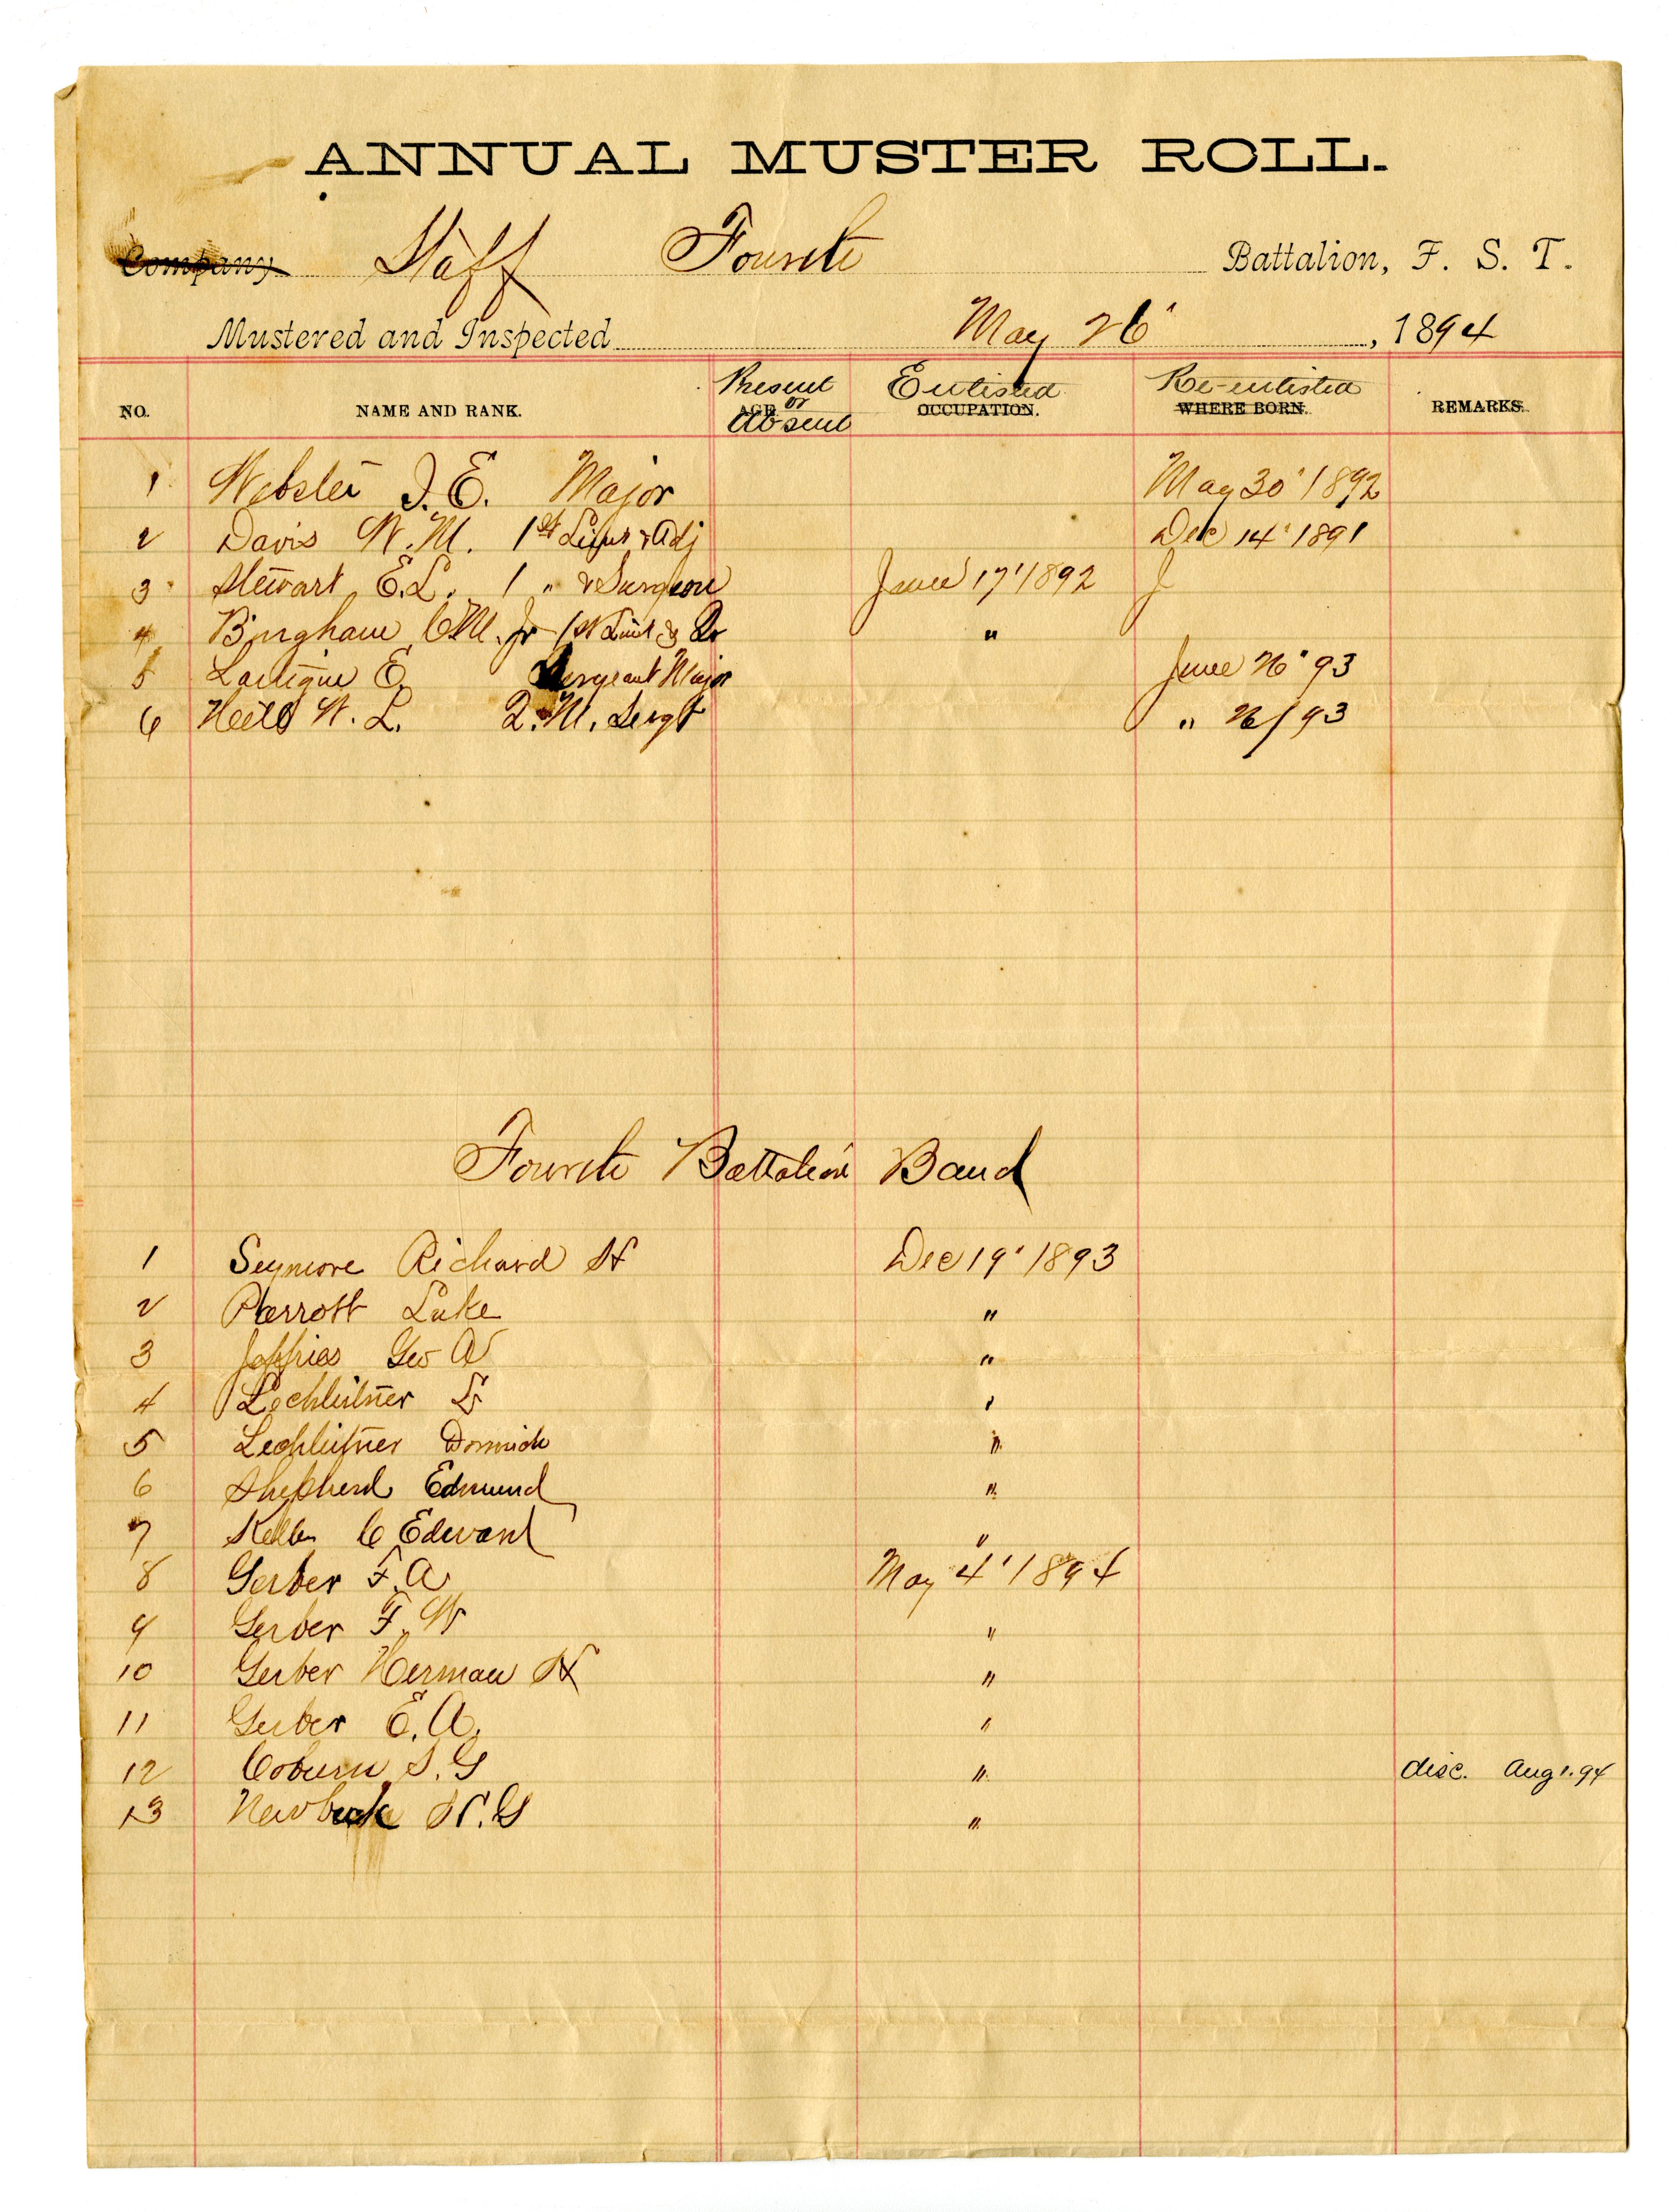 ANNUAL MUSTER ROLL.
Company Staff Fourth Battalion, F. S. T.
Mustered and Inspected May 26' , 1894
NO. NAME AND RANK. Present or Absent AGE. Enlisted OCCUPATION. Re-enlisted WHERE BORN. REMARKS.
1 Webster I. E. Major May 30' 1892
2 Davis W. M. 1st Lieut & Adj Dec 14' 1891
3 Stewart E. L. 1 " & Surgeon June 17' 1892
4 Bingham C. M. Jr 1st Lieut & "
5 Lartigue E. Sergeant Major June 26' 93
6 W. L. Q. M. Sergt " 26/93
Fourth Battalion Band
1 Seymore Richard H Dec 19' 1893
2 Parrott Luke "
3 Jeffries Geo A "
4 Lechleitner L "
5 Lechleitner Dominick "
6 Shepherd Edmund "
7 C Edward "
8 Gerber F. A May 4' 1894
9 Gerber F. W "
10 Gerber Herman H "
11 Gerber E. A. "
12 Coburn S. G " disc. Aug 1. 94
13 Newbeck W. G "